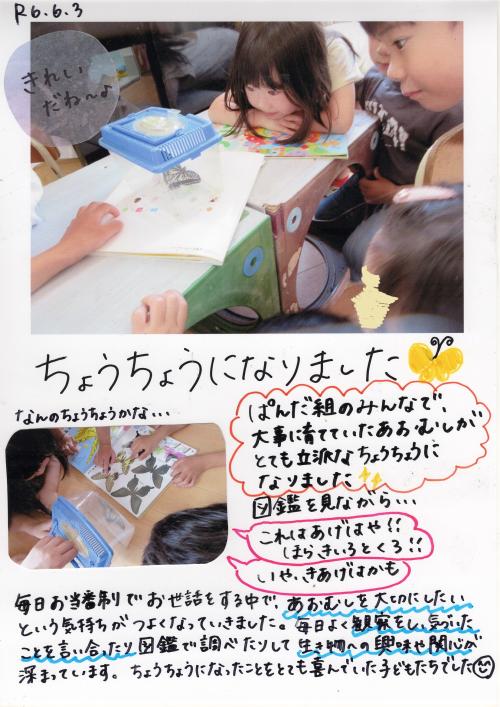 R6.6.3
きれい
だね〜♪
ちょうちょうになりました
なんのちょうちょうかな...
ぱんだ組のみんなで、
大事に育てていたあおむしが
とても立派なちょうちょうに
なりました
図鑑を見ながら...
これはあげはや!!
ほらきいろとくろ!!
いや、きあげはかも
毎日お当番制でお世話をする中で、あおむしを大切にしたい
という気持ちがつよくなっていきました。毎日よく観察をし、気づいた
ことを言い合たり図鑑で調べたりして生き物への興味や関心が
深まっています。ちょうちょうになったことをとても喜んでいた子どもたちでした